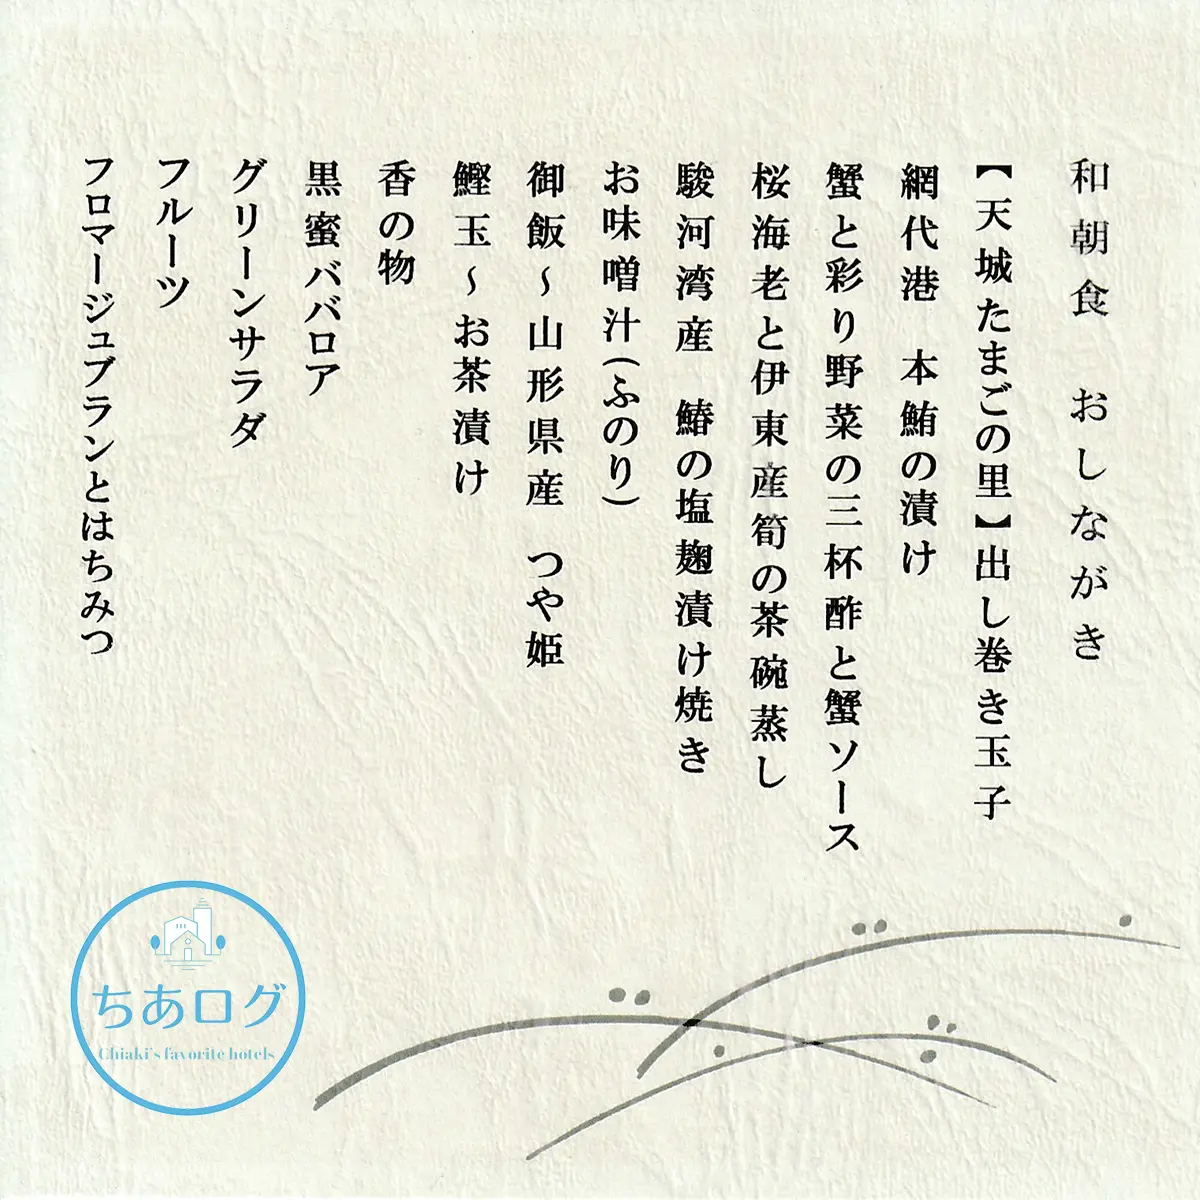 和朝食　おしながき
【天城たまごの里】出し巻き玉子
網代港　本鮪の漬け
蟹と彩り野菜の三杯酢と蟹ソース
桜海老と伊東産筍の茶碗蒸し
駿河湾産　鰆の塩麹漬け焼き
お味噌汁(ふのり)
御飯～山形県産　つや姫
鰹玉～お茶漬け
香の物
黒蜜ババロア
グリーンサラダ
フルーツ
フロマージュブランとはちみつ
ちあログ
Chiaki's favorite hotels